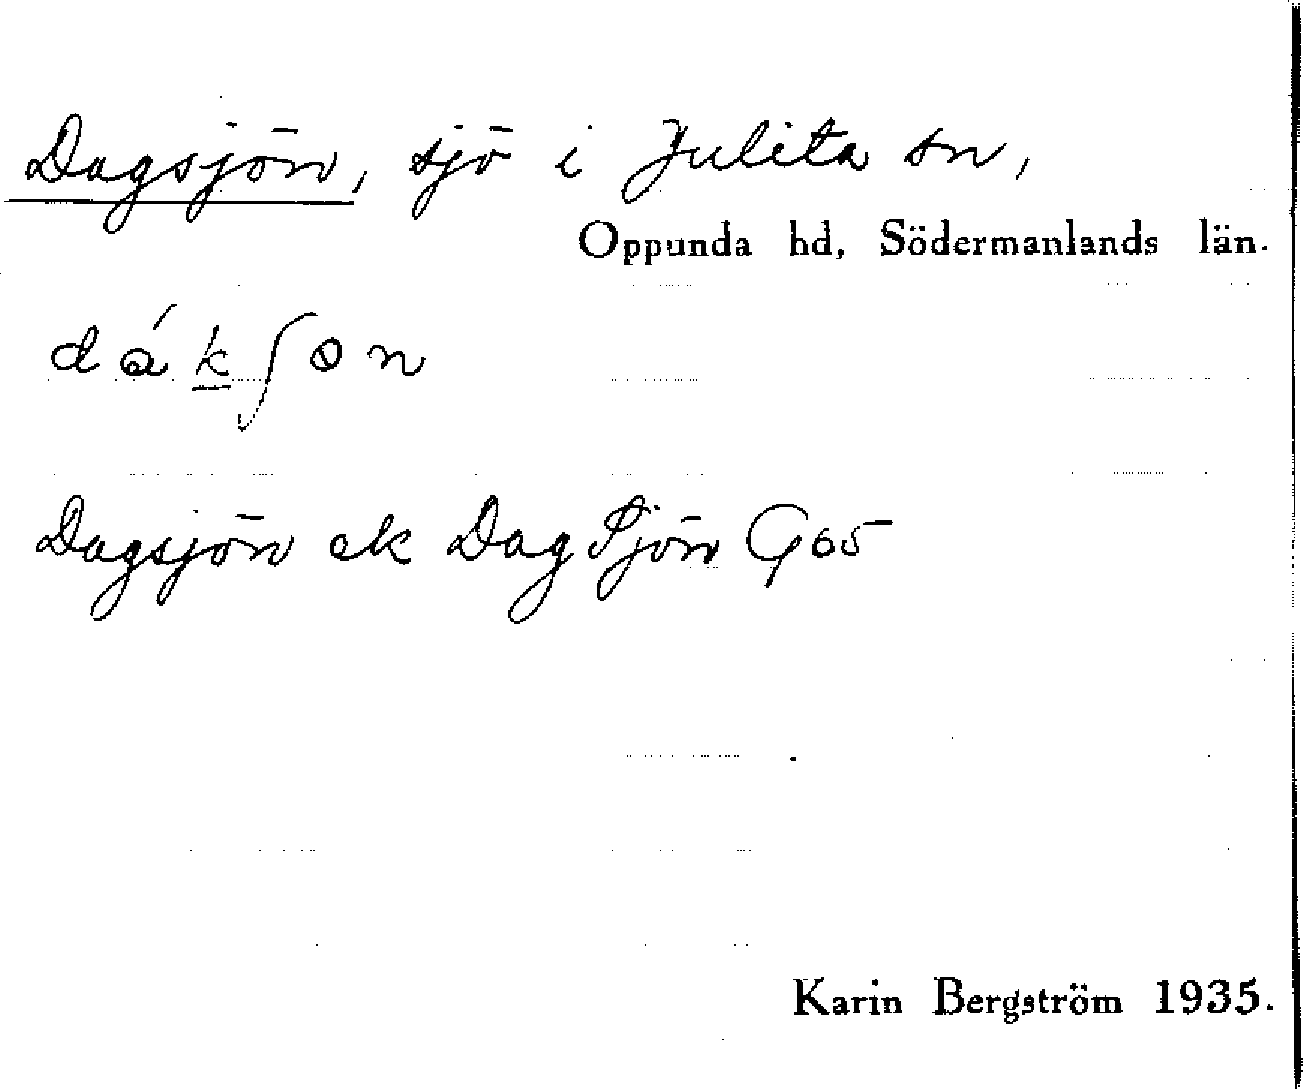 Dagsjön, sjö i Julita sn,
Oppunda hd, Södermanlands län.
dákʃөn
Dagsjön ek Dag Sjön G65
Karin Bergström 1935.